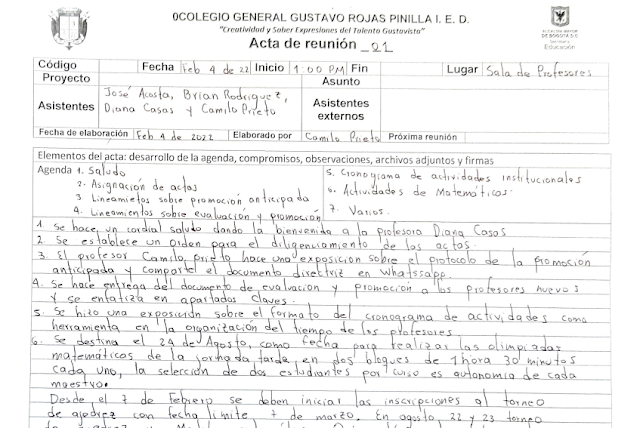 0COLEGIO GENERAL GUSTAVO ROJAS PINILLA I. E. D.
"Creatividad y Saber Expresiones del Talento Gustavista"
Acta de reunión _01
ALCALDÍA MAYOR
DE BOGOTÁ D.C.
Educación
Código Fecha Feb 4 de 22 Inicio 1:00 PM Fin Lugar Sala de Profesores
Proyecto Asunto
Asistentes José Acosta, Brian Rodriguez, Asistentes
Diana Casas y Camilo Prieto externos
Fecha de elaboración Feb 4 de 2022 Elaborado por Camilo Prieto Próxima reunión
Elementos del acta: desarrollo de la agenda, compromisos, observaciones, archivos adjuntos y firmas
Agenda 1. Saludo
2. Asignación de actas
3 Lineamietos sobre promoción anticipada
4. Lineamientos sobre evaluación y promoción
5. Cronograma de actividades institucionales
6. Actividades de Matemáticas.
7. Varios.
1 Se hace un cordial saludo dando la bienvenida a la profesora Diana Casas
2 Se establece un orden para el diligenciamiento de las actas.
3. El profesor Camilo Prieto hace una exposición sobre el protocolo de la promoción
anticipada y comparte el documento directriz en Whatssapp.
4. Se hace entrega del documento de evaluación y promoción a los profesores nuevos
y se enfatiza en apartados claves.
5. Se hizo una exposición sobre el formato del cronograma de actividades como
herramienta en la organización del tiempo de los profesores.
6. Se destina el 24 de Agosto, como fecha para realizar las olimpiadas
matemáticas de la jornada tarde, en dos bloques de 1 hora 30 minutos
cada uno, la selección de dos estudiantes por curso es autonomía de cada
maestro.
Desde el 7 de Febrero se deben iniciar las inscripciones al torneo
de ajedrez con fecha límite 7 de marzo. En agosto, 22 y 23 torneo